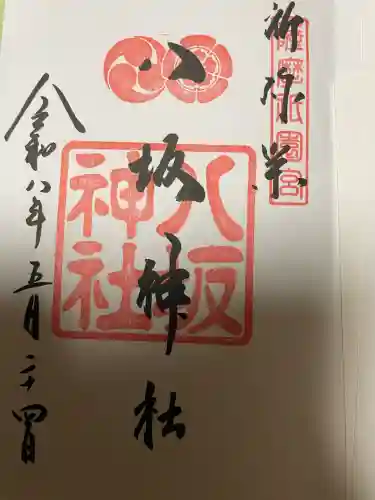 薩摩祇園宮
八坂神社
八坂神社
令和八年五月二十四日